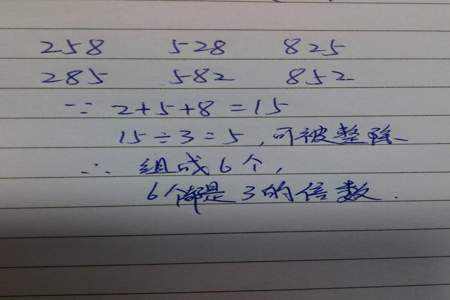 258 528 825
285 582 852
∵ 2+5+8=15
15÷3=5,可被整除
∴ 组成6个,
6个都是3的倍数.